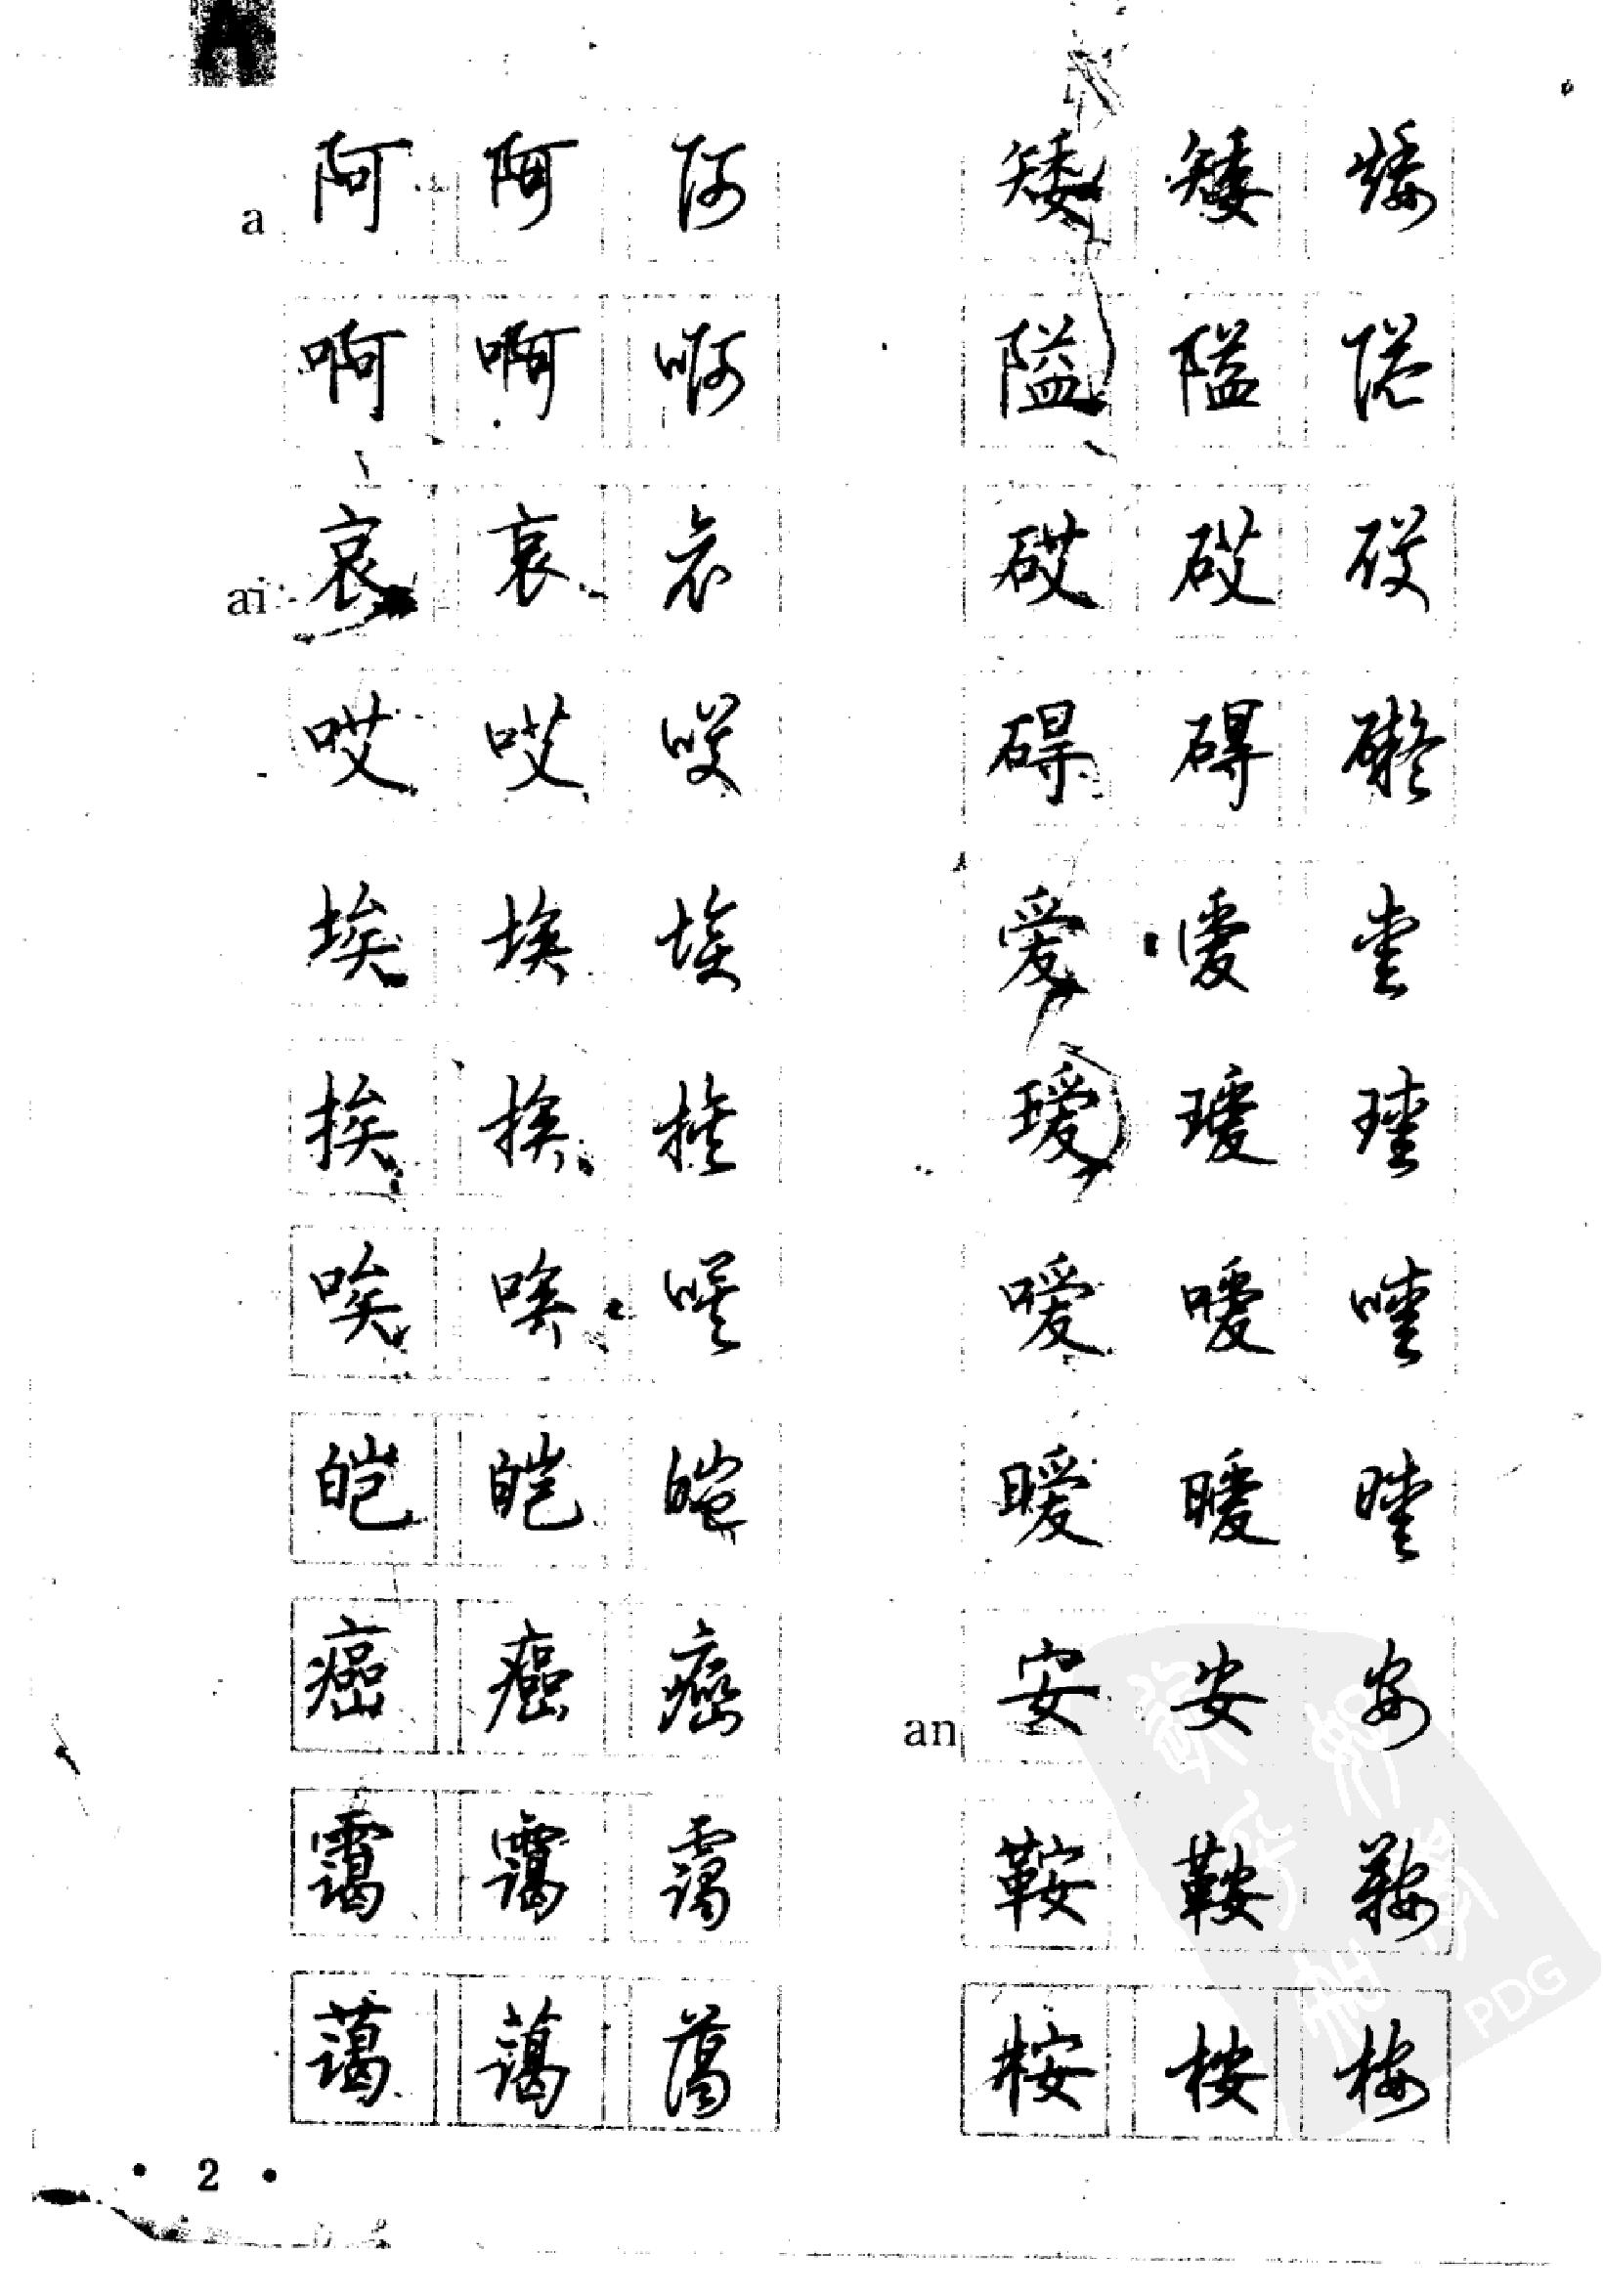 A
a 阿 阿 阿
啊 啊 啊
ai 哀 哀 哀
哎 哎 哎
埃 埃 埃
挨 挨 挨
唉 唉 唉
皑 皑 皑
癌 癌 癌
霭 霭 霭
蔼 蔼 蔼
矮 矮 矮
隘 隘 隘
砹 砹 砹
碍 碍 礙
爱 爱 爱
瑷 瑷 瑷
嗳 嗳 嗳
暧 暧 暧
an 安 安 安
鞍 鞍 鞍
桉 桉 桉
• 2 •
PDG